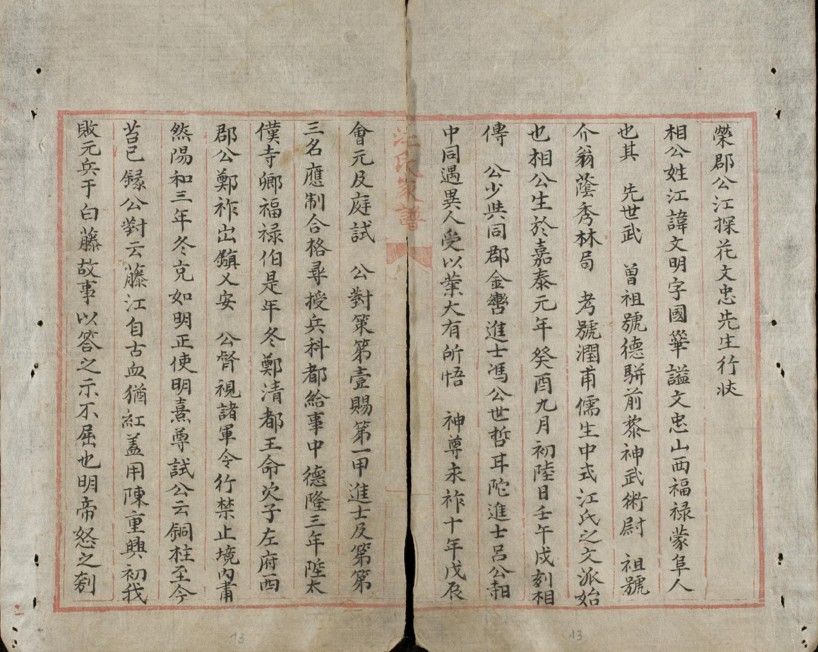 榮郡公江探花文忠先生行狀
相公姓江諱文明字國華諡文忠山西福禄蒙阜人
也其 先世武 曾祖號德駢前黎神武術尉 祖號
介翁蔭秀林局 考號潤甫儒生中式江氏之文派始
也相公生於嘉泰元年癸酉九月初陸日壬午戍刻相
傳 公少與同郡金轡進士馮公世哲耳陀進士呂公
中同遇異人受以業大有所悟 神尊未祚十年戊辰
江氏家譜
會元及庭試 公對策第壹賜第一甲進士及第第
三名應制合格尋授兵科都給事中德隆三年陞太
僕寺卿福禄伯是年冬鄭清都王命次子左府西
郡公鄭祚出鎮乂安 公督視諸軍令行禁止境內肅
然陽和三年冬充如明正使明熹尊試公云銅柱至今
苔已緑公對云藤江自古血猶紅蓋用陳重興初我
敗元兵于白藤故事以答之示不屈也明帝怒之刳
13
13